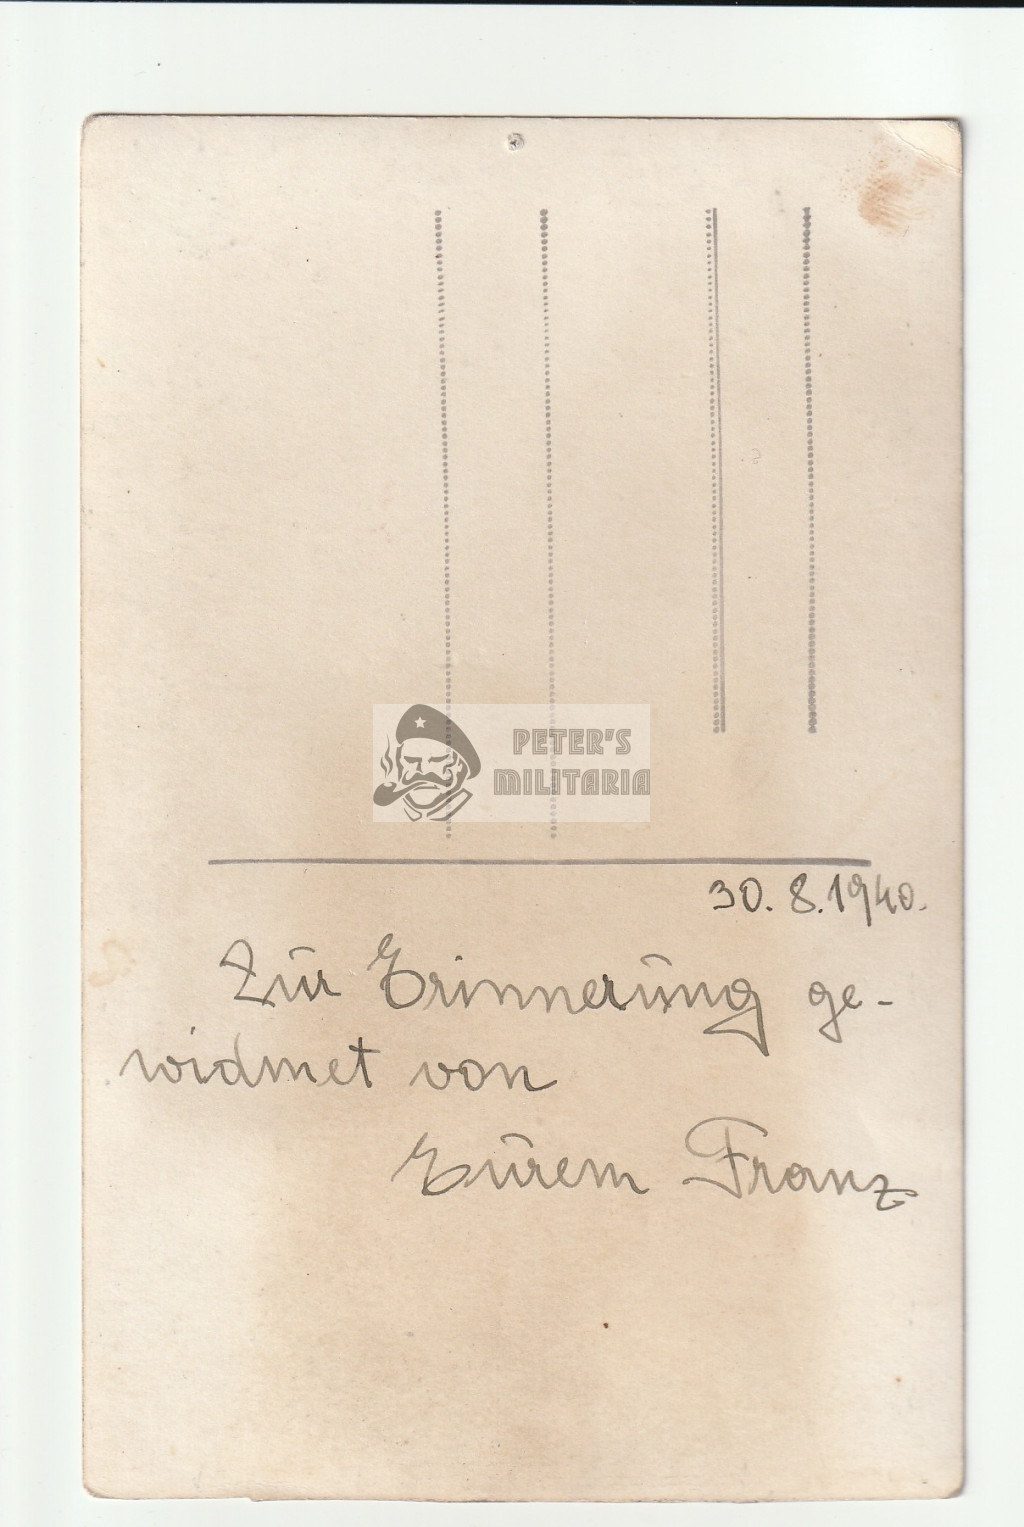 PETER'S
MILITARIA
30. 8. 1940.
Zur Erinnerung ge-
widmet von
Eurem Franz